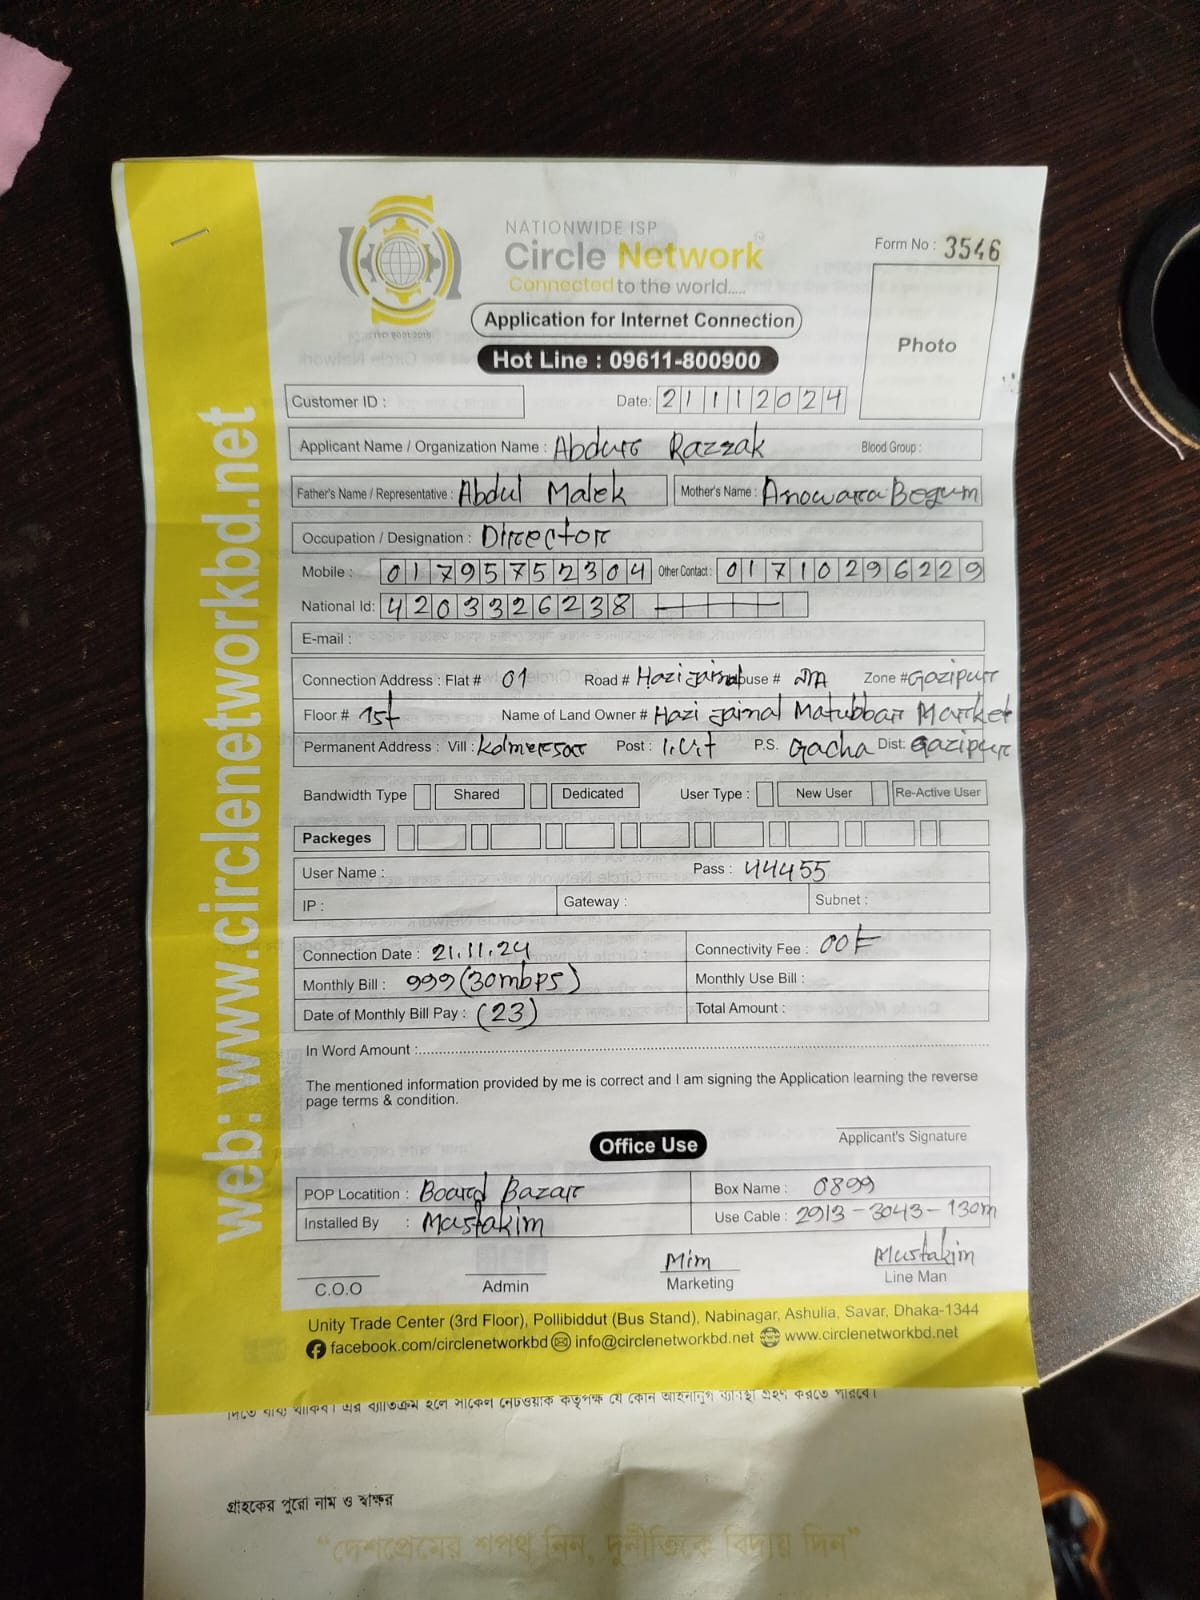 NATIONWIDE ISP
Circle Network
Connected to the world.....
Form No : 3546
Application for Internet Connection
Hot Line : 09611-800900
Photo
Customer ID : Date: 21112024
Applicant Name / Organization Name : Abdur Razzak Blood Group :
Father's Name / Representative : Abdul Malek Mother's Name : Anowara Begum
Occupation / Designation : Director
Mobile : 01795752304 Other Contact : 01710296229
National Id: 4203326238
E-mail :
Connection Address : Flat # 01 Road # Hazi jainal House # Zone # Gazipur
Floor # 1st Name of Land Owner # Hazi jainal Matubbar Market
Permanent Address : Vill : Kolmersor Post : P.S. Gacha Dist: Gazipur
Bandwidth Type Shared Dedicated User Type : New User Re-Active User
Packeges
User Name : Pass : 44455
IP : Gateway : Subnet :
Connection Date : 21.11.24 Connectivity Fee : 00
Monthly Bill : 999 (30mbps) Monthly Use Bill :
Date of Monthly Bill Pay : (23) Total Amount :
In Word Amount :
The mentioned information provided by me is correct and I am signing the Application learning the reverse
page terms & condition.
Applicant's Signature
Office Use
POP Locatition : Board Bazar Box Name : 0899
Installed By : Mustakim Use Cable : 2913-3043-130m
Mim Mustakim
C.O.O Admin Marketing Line Man
Unity Trade Center (3rd Floor), Pollibiddut (Bus Stand), Nabinagar, Ashulia, Savar, Dhaka-1344
facebook.com/circlenetworkbd info@circlenetworkbd.net www.circlenetworkbd.net
web: www.circlenetworkbd.net
গ্রাহকের পুরো নাম ও স্বাক্ষর
“দেশপ্রেমের শপথ নিন, দুর্নীতিকে বিদায় দিন”